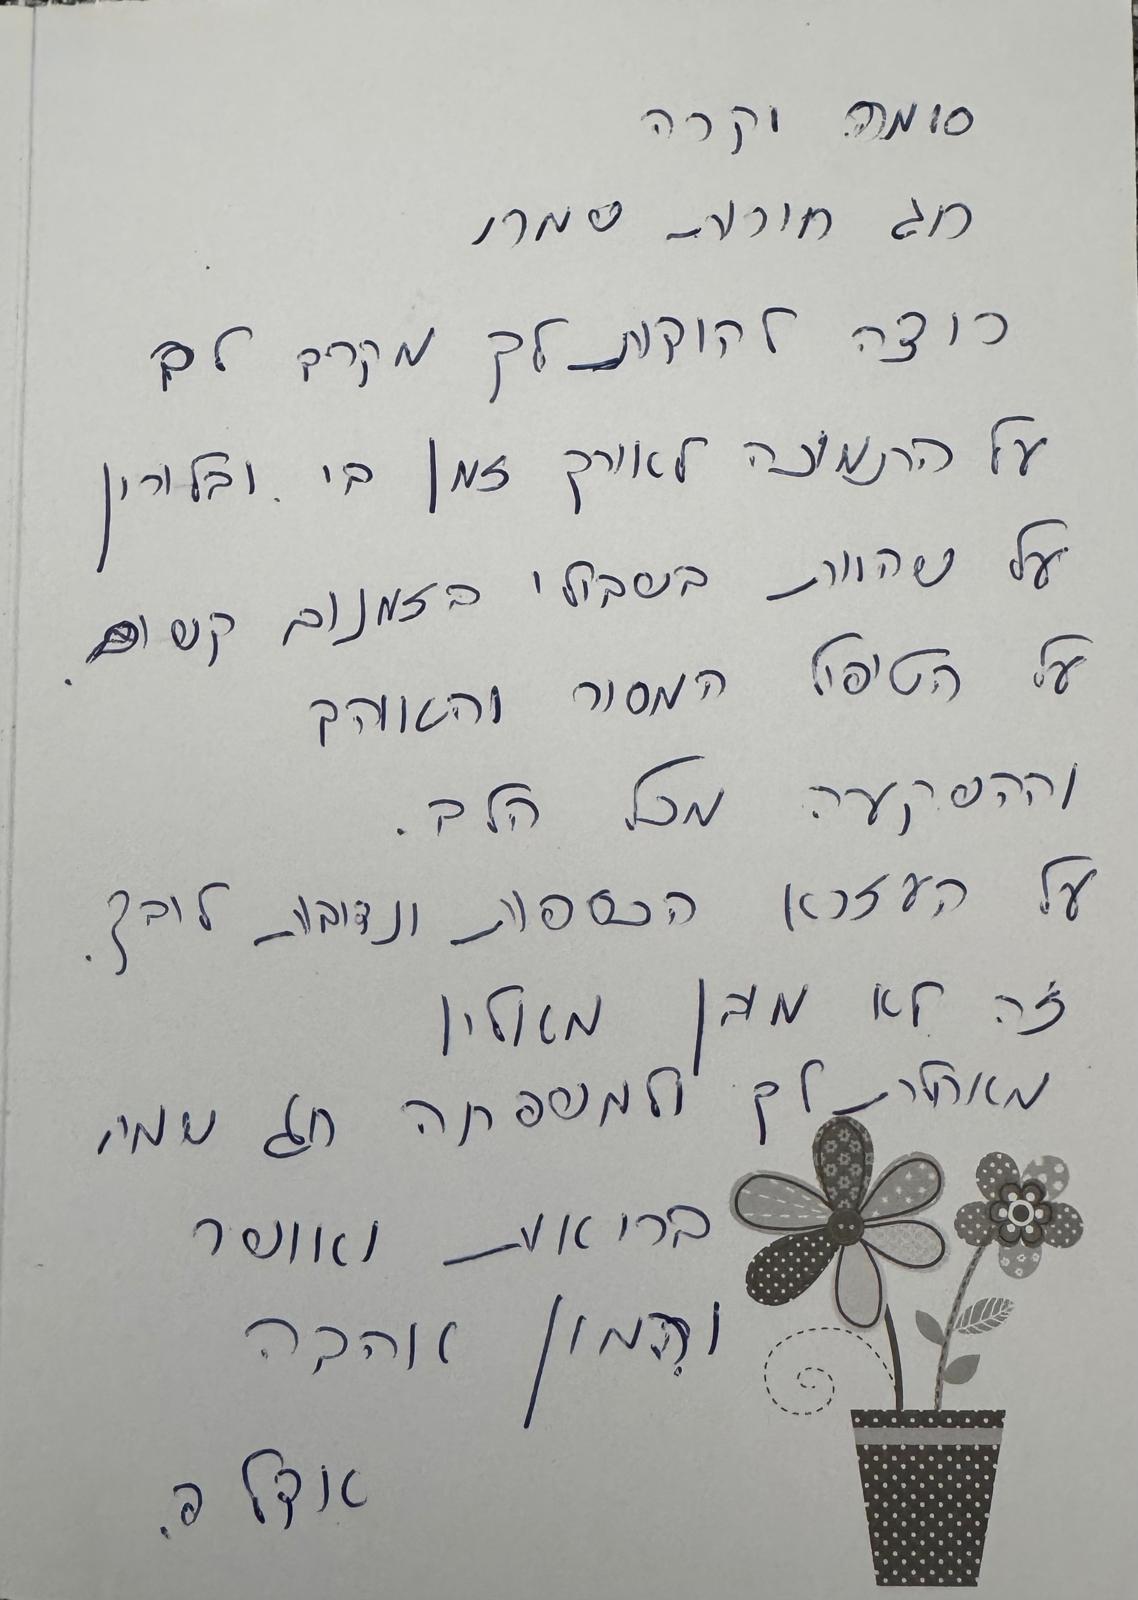 סומה וקרה
חג חורות שמח
רוצה להודות לך מקרב לב
על התמיכה לאורך זמן בי ובלורין
על שהיות בשבילי בזמנים קשים.
על הטיפול המסור והאוהב
וההשקעה מכל הלב.
על העזרא הכספית ונדיבות לובך.
זה לא מובן מאולין
מאחלת לך ולמשפחה חג שמח
בריאות ואוושר
והמון אוהבה
אודל פ.